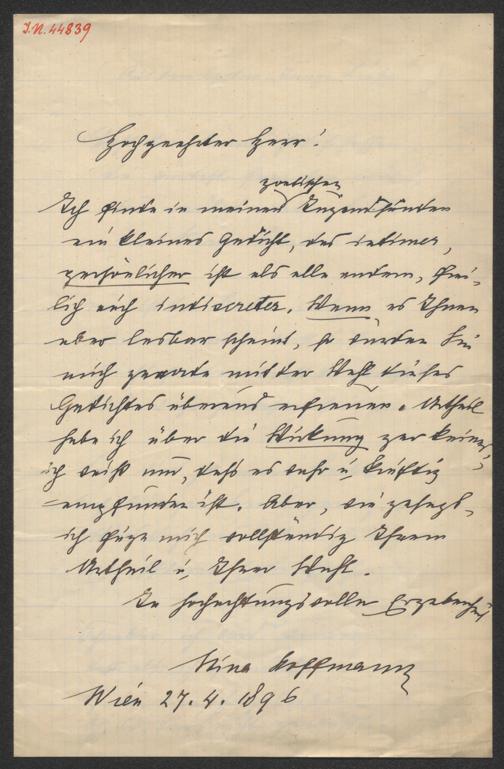 I.N. 44839
Hochgeehrter Herr!
poetischen
Ich finde in meinen Jugendsünden
ein kleines Gedicht, das intimer,
persönlicher ist als alle andern, frei-
lich auch indiscreter. Wenn es Ihnen
aber lesbar scheint, so würden Sie
mich gerade mit der Wahl dieses
Gedichtes überaus erfreuen. Urtheil
habe ich über die Wirkung gar keines,
ich weiß nur, daß es wahr u. kräftig
empfunden ist. Aber, wie gesagt,
ich füge mich vollständig Ihrem
Urtheil u. Ihrer Wahl.
In hochachtungsvoller Ergebenheit
Nina Hoffmann
Wien 27.4.1896